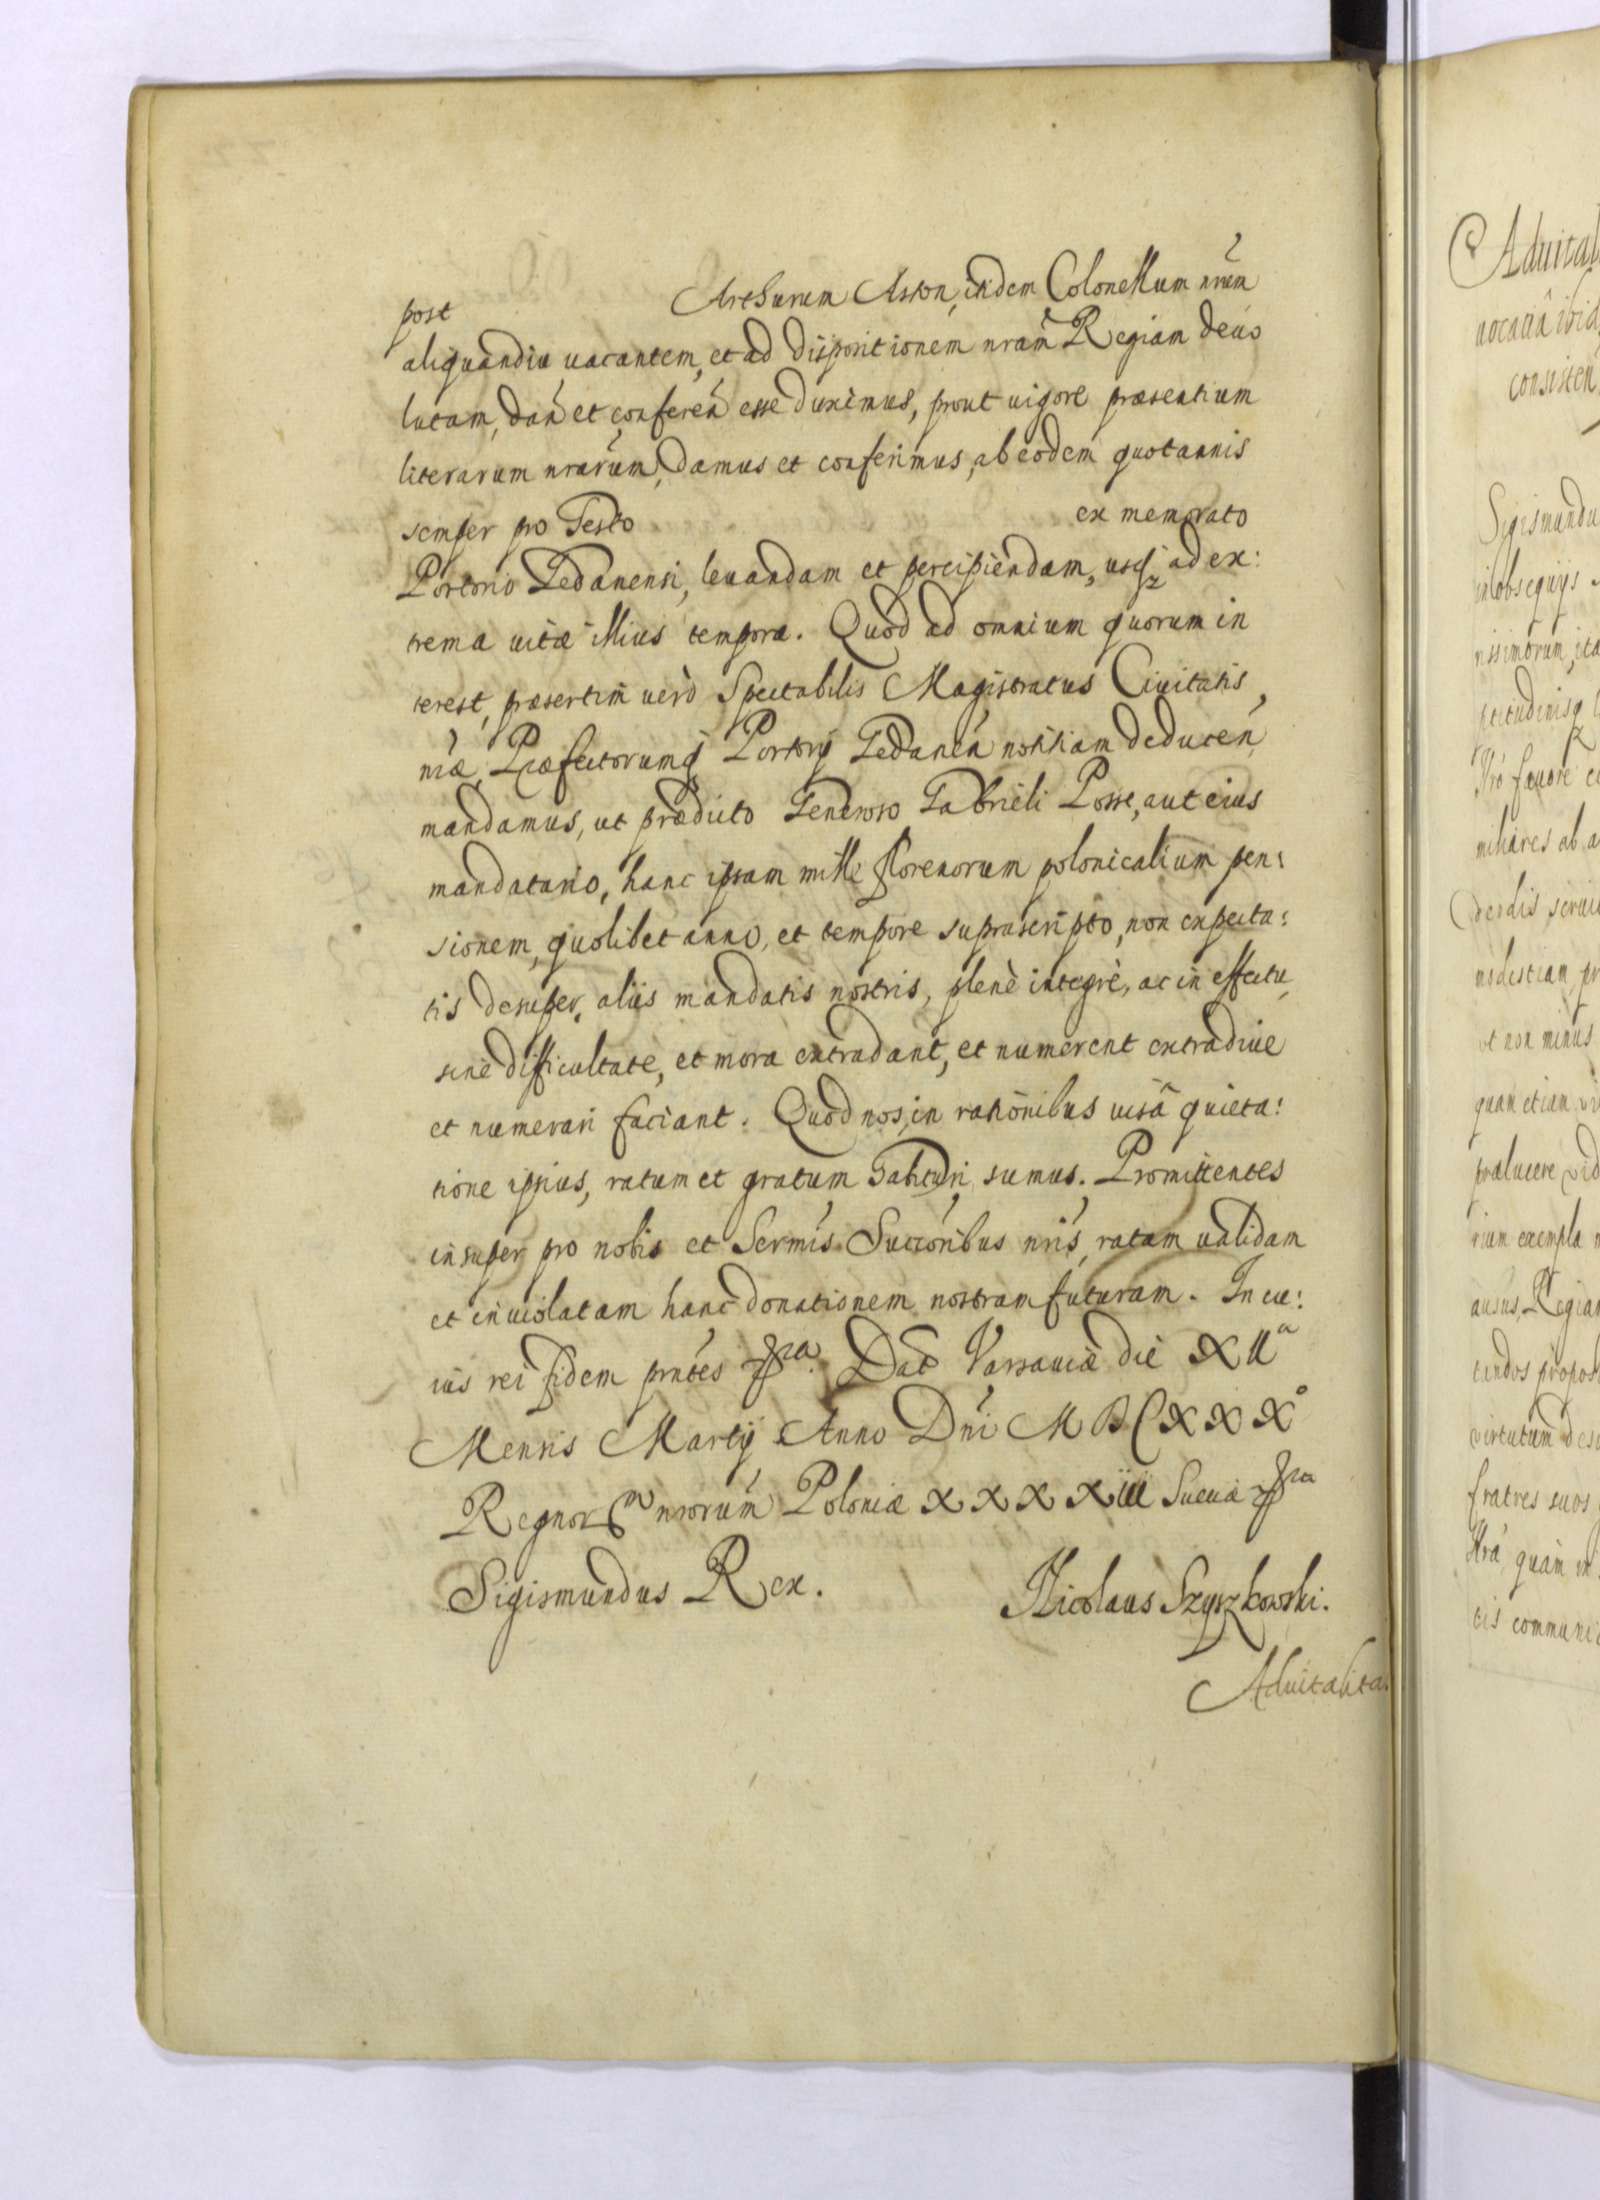 post Arthurum Aston, itidem Colonellum nrum
aliquandiu uacantem, et ad dispositionem nram Regiam deuo
lutam, dan et conferen esse duximus, prout uigore præsentium
literarum nrarum, damus et conferimus, ab eodem quotannis
semper pro Festo ex memorato
Portorio Gedanensi, leuandam et percipiendam, usq ad ex:
trema uitæ illius tempora. Quod ad omnium quorum in
terest, præsertim uerò Spectabilis Magistratus Ciuitatis,
niæ, Præfectorumq Portorij Gedanen notitiam deducen
mandamus, ut prædicto Generoso Gabrieli Posse, aut eius
mandatario, hanc ipsam mille florenorum polonicalium pen:
sionem, quolibet anno, et tempore suprascripto, non expecta:
tis desuper, aliis mandatis nostris, plenè integrè, ac in effectu,
sine difficultate, et mora extradant, et numerent extradiue
et numerari faciant. Quod nos, in rationibus uisâ quieta:
tione ipsius, ratum et gratum habituri sumus. Promittentes
insuper pro nobis et Sermis Succoribus nris, ratam ualidam
et inuiolatam hanc donationem nostram futuram. In cu:
ius rei fidem pntes Dat Varsauiæ die XIIª
Mensis Martij Anno Dni MDCXXX°
Regnor nrorum Poloniæ XXXXIII Sueciæ
Sigismundus Rex. Nicolaus Szyszkowski.
Aduitalita
Aduital
uocatiâ ibid
consisten
Sigismundu
in obsequijs
nissimorum, ita
ptitudinisq
Pro fauore
milires ab a
modestiam, pr
et non minus
quam etiam
prælucere uid
rium exempla
ausus, Regiam
tandos propos
uirtutum des
fratres suos
tis communi